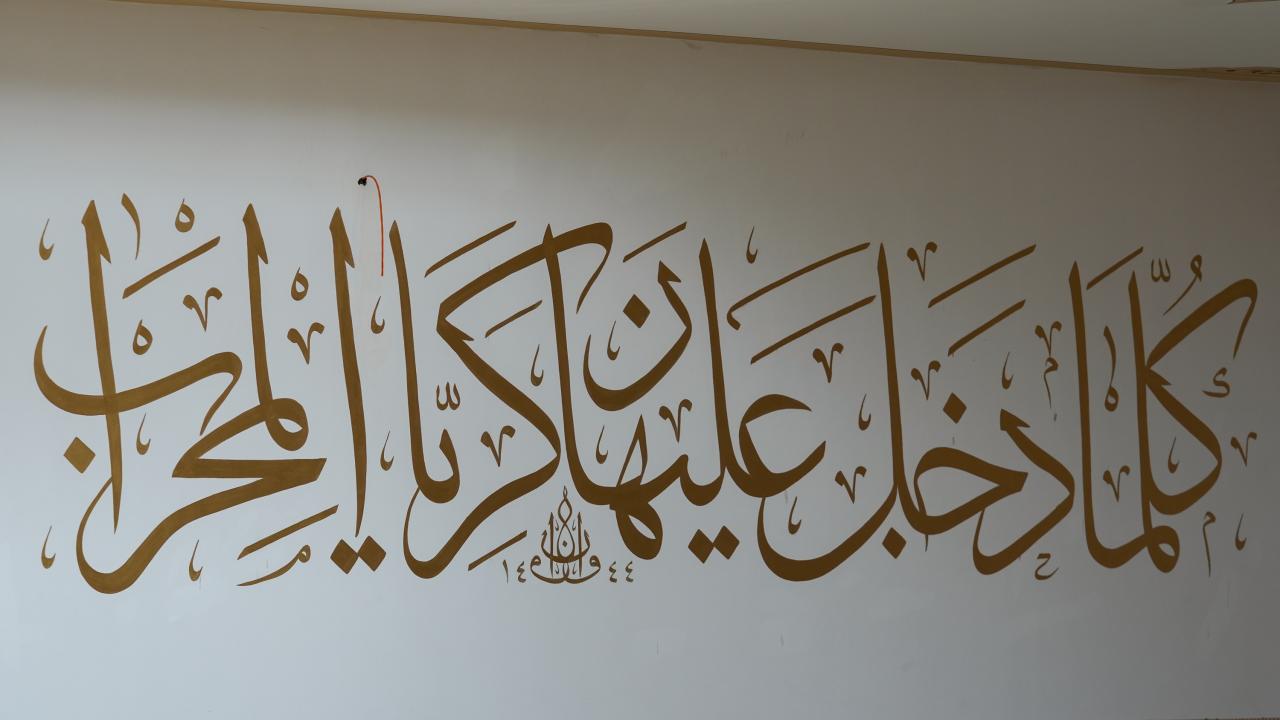 كُلَّمَا دَخَلَ عَلَيْهَا زَكَرِيَّا الْمِحْرَابَ
١٤٤٤